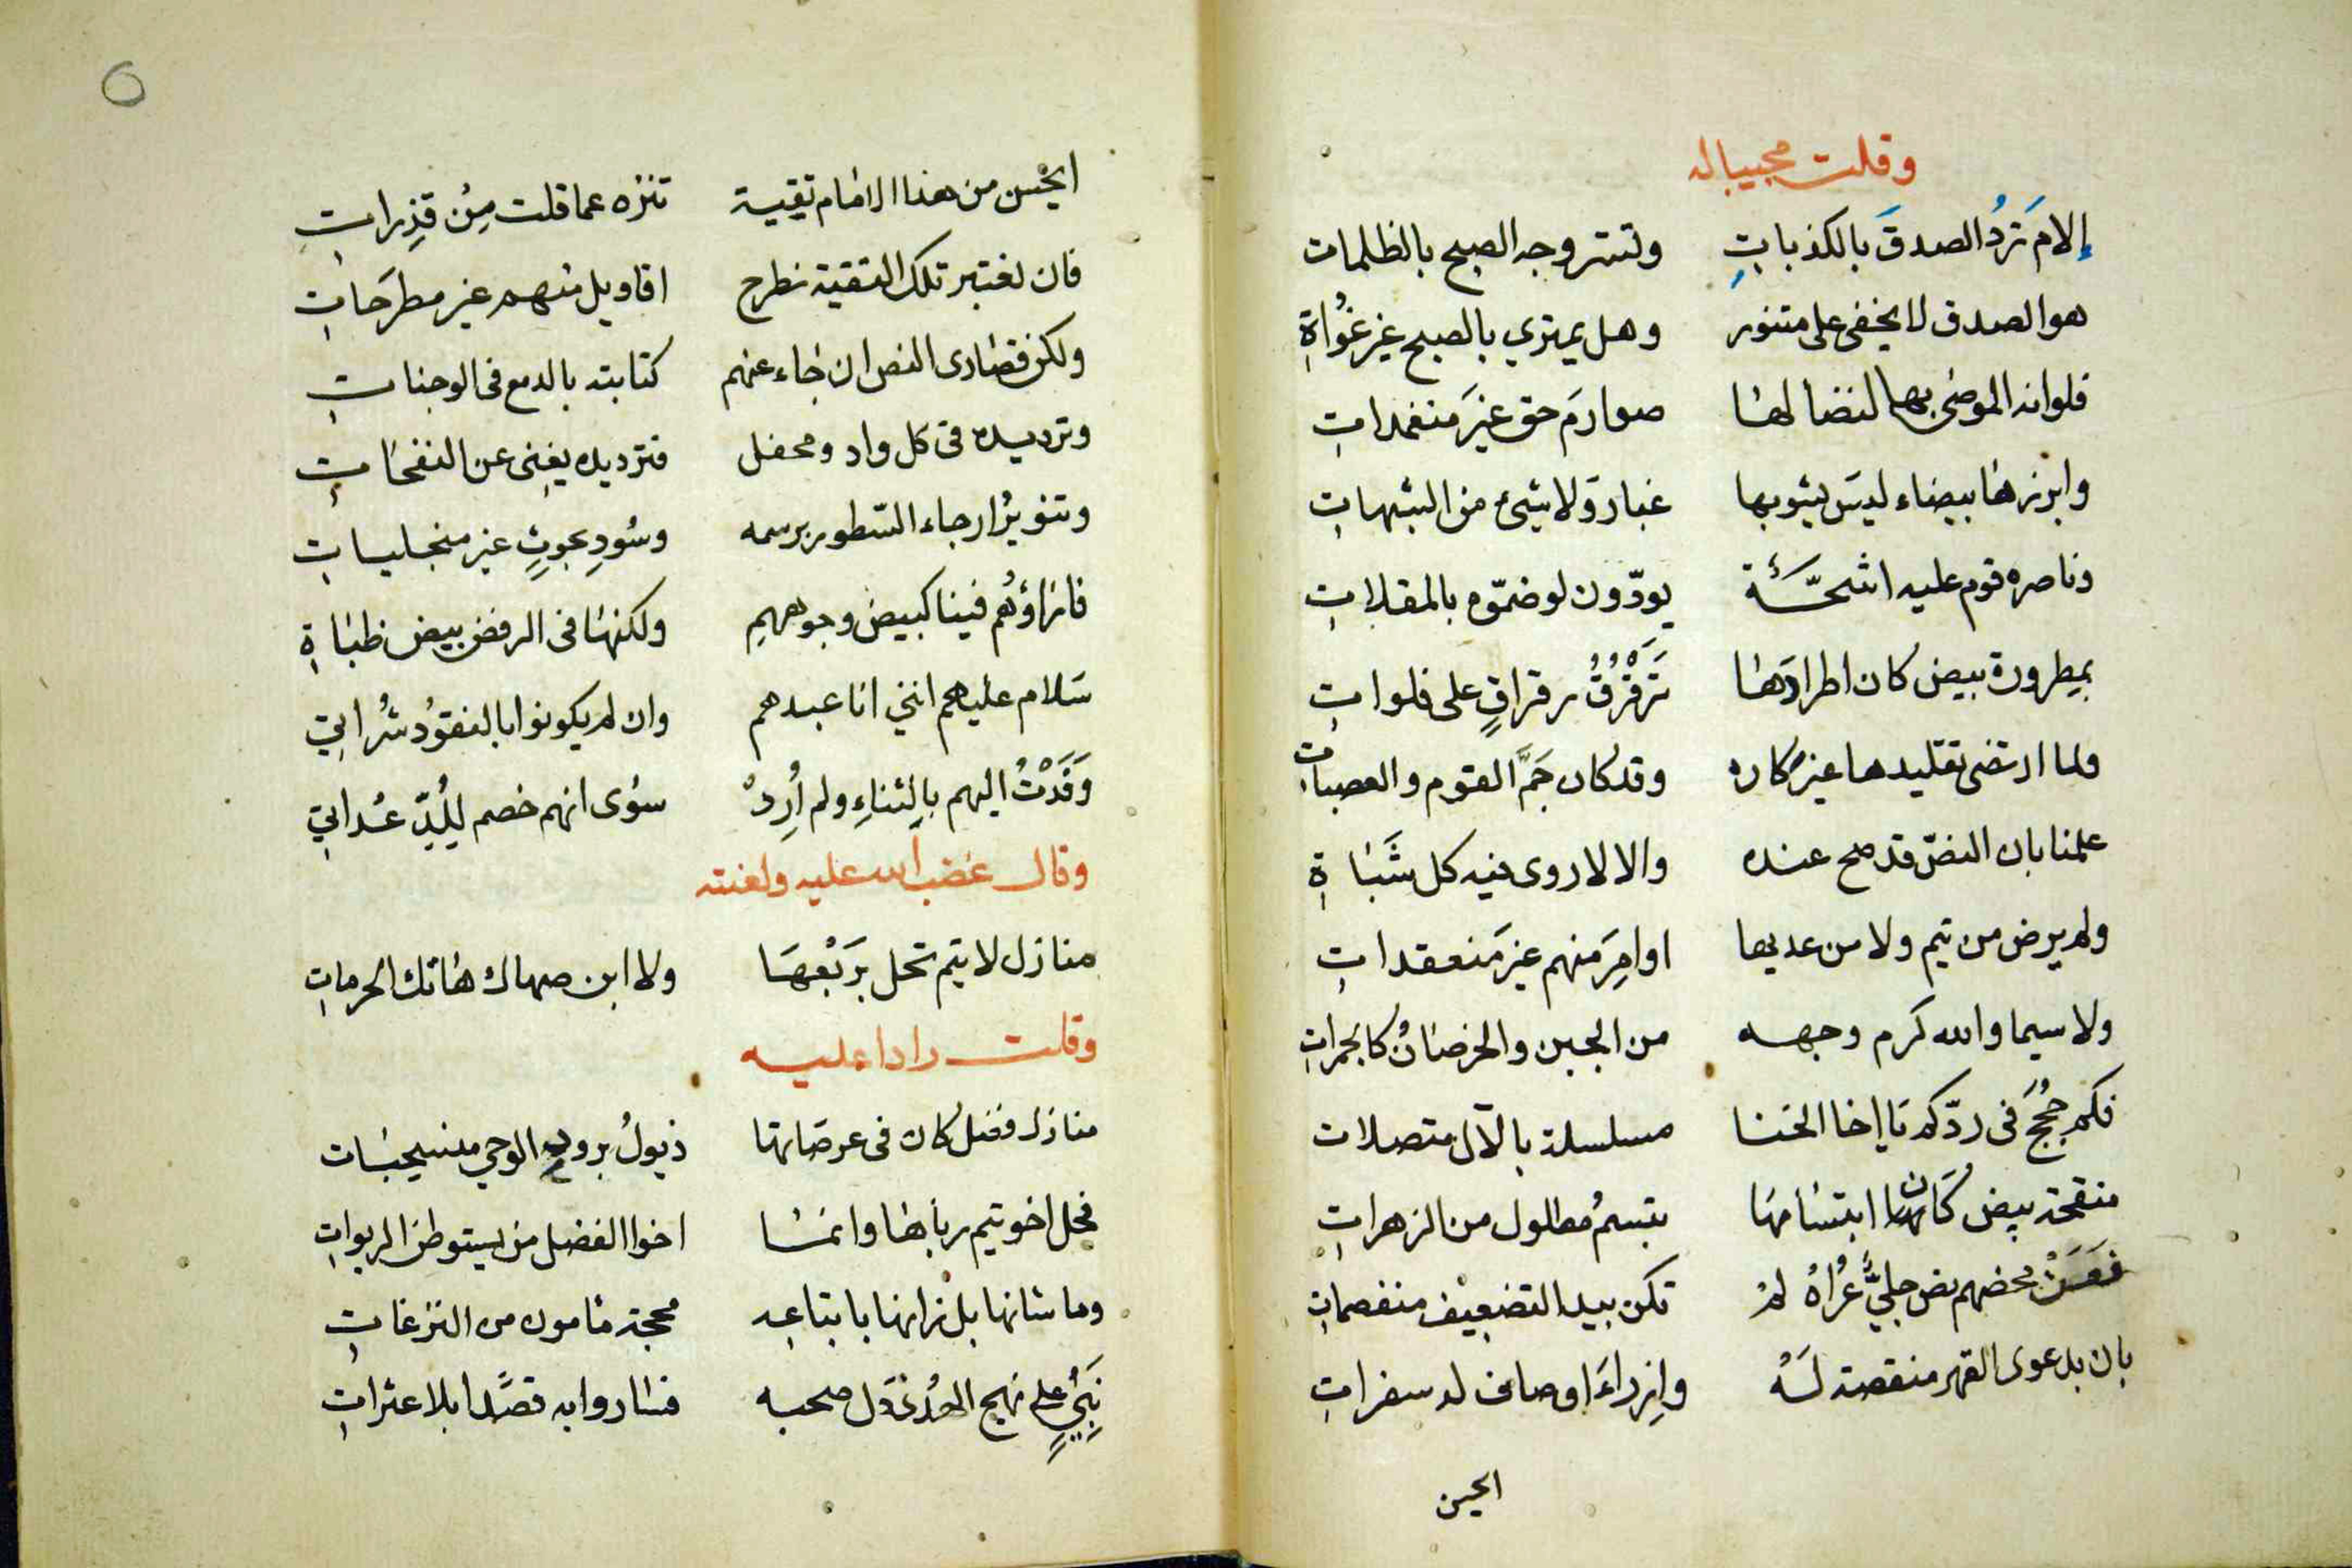 وقلت مجيبا له
إلامَ تردُ الصدقَ بالكذباتِ ولتستر وجه الصبح بالظلمات
هو الصدق لا يخفى على متنور وهل يمتري بالصبح غير غُواةِ
فلو انه الموصى بها لنضا لها صوارمَ حق غيرَ منغمداتِ
وابرزها بيضاء ليسَ يشوبها غبار ولا شيئ من الشبهاتِ
وناصره قوم عليه اشحّة يودّون لو ضمّوه بالمقلاتِ
بمطرورة بيض كان اطرادَها تَرَقْرُقُ رقراقٍ على فلواتِ
ولما ارتضى تقليدها غير كاره وقد كان جَمَّ القوم والعصبات
علمنا بان النصّ قد صح عنده والا لاروى فيه كل شَبَاةِ
ولم يرض من تيم ولا من عديها اوامِرَ منهم غيرَ منعقداتِ
ولا سيما والله كرم وجهه من الجبن والخرصانُ كالجمراتِ
فكم حُجَج في ردّكم يا إخا الخنا مسلسلة بالآل متصلات
منقحة بيض كَانّ ابتسامها تبسمُ مطلول من الزهراتِ
محضهم نص جليٌّ عُراهُ لم تكن بيد التضعيف منفصماتِ
بان بدعوى القهر منقصة لَهُ وازراءَ اوصاف له سفراتِ
الحين
ايحسن من هذا الامام تقية تنزه عما قلت مِن قذِراتِ
فان نعتبر تلك التقية نطرح اقاويل منهم غير مطرحَاتِ
ولكن قصارى النص ان جاء عنهم كتابته بالدمع في الوجناتِ
وترديده في كل واد ومحفل فترديده يغنى عن النفحاتِ
وتنويرُ ارجاء السّطور برسمه وسُودِ بحوثٍ غير منجلياتِ
فازاؤُهُم فينا كبيض وجوههمِ ولكنها في الرفض بيض ظباةِ
سَلام عليهم انني انا عبدهم وان لم يكونوا بالنقوُد شُراتي
وَفَدْتُ اليهم بالثناءِ ولم أُرِدْ سوى انهم خصم لِلُدّ عُداتي
وقال غضب الله عليه ولعنته
منازل لا تيم تحل برَبْعهَا ولا ابن صهاك هاتك الحرمات
وقلت رادا عليه
منازل فضل كان في عرصَاتها ذيولُ برود الوحي منسحبات
فحل اخو تيم رباها وانما اخوا الفضل من يستوطن الربواتِ
وما شانها بل زانها باتباعه محجة مامون من النزغاتِ
نَبِيٍّ على نهج الهُدى دَل صحبه فساروا به قصدًا بلا عثراتِ